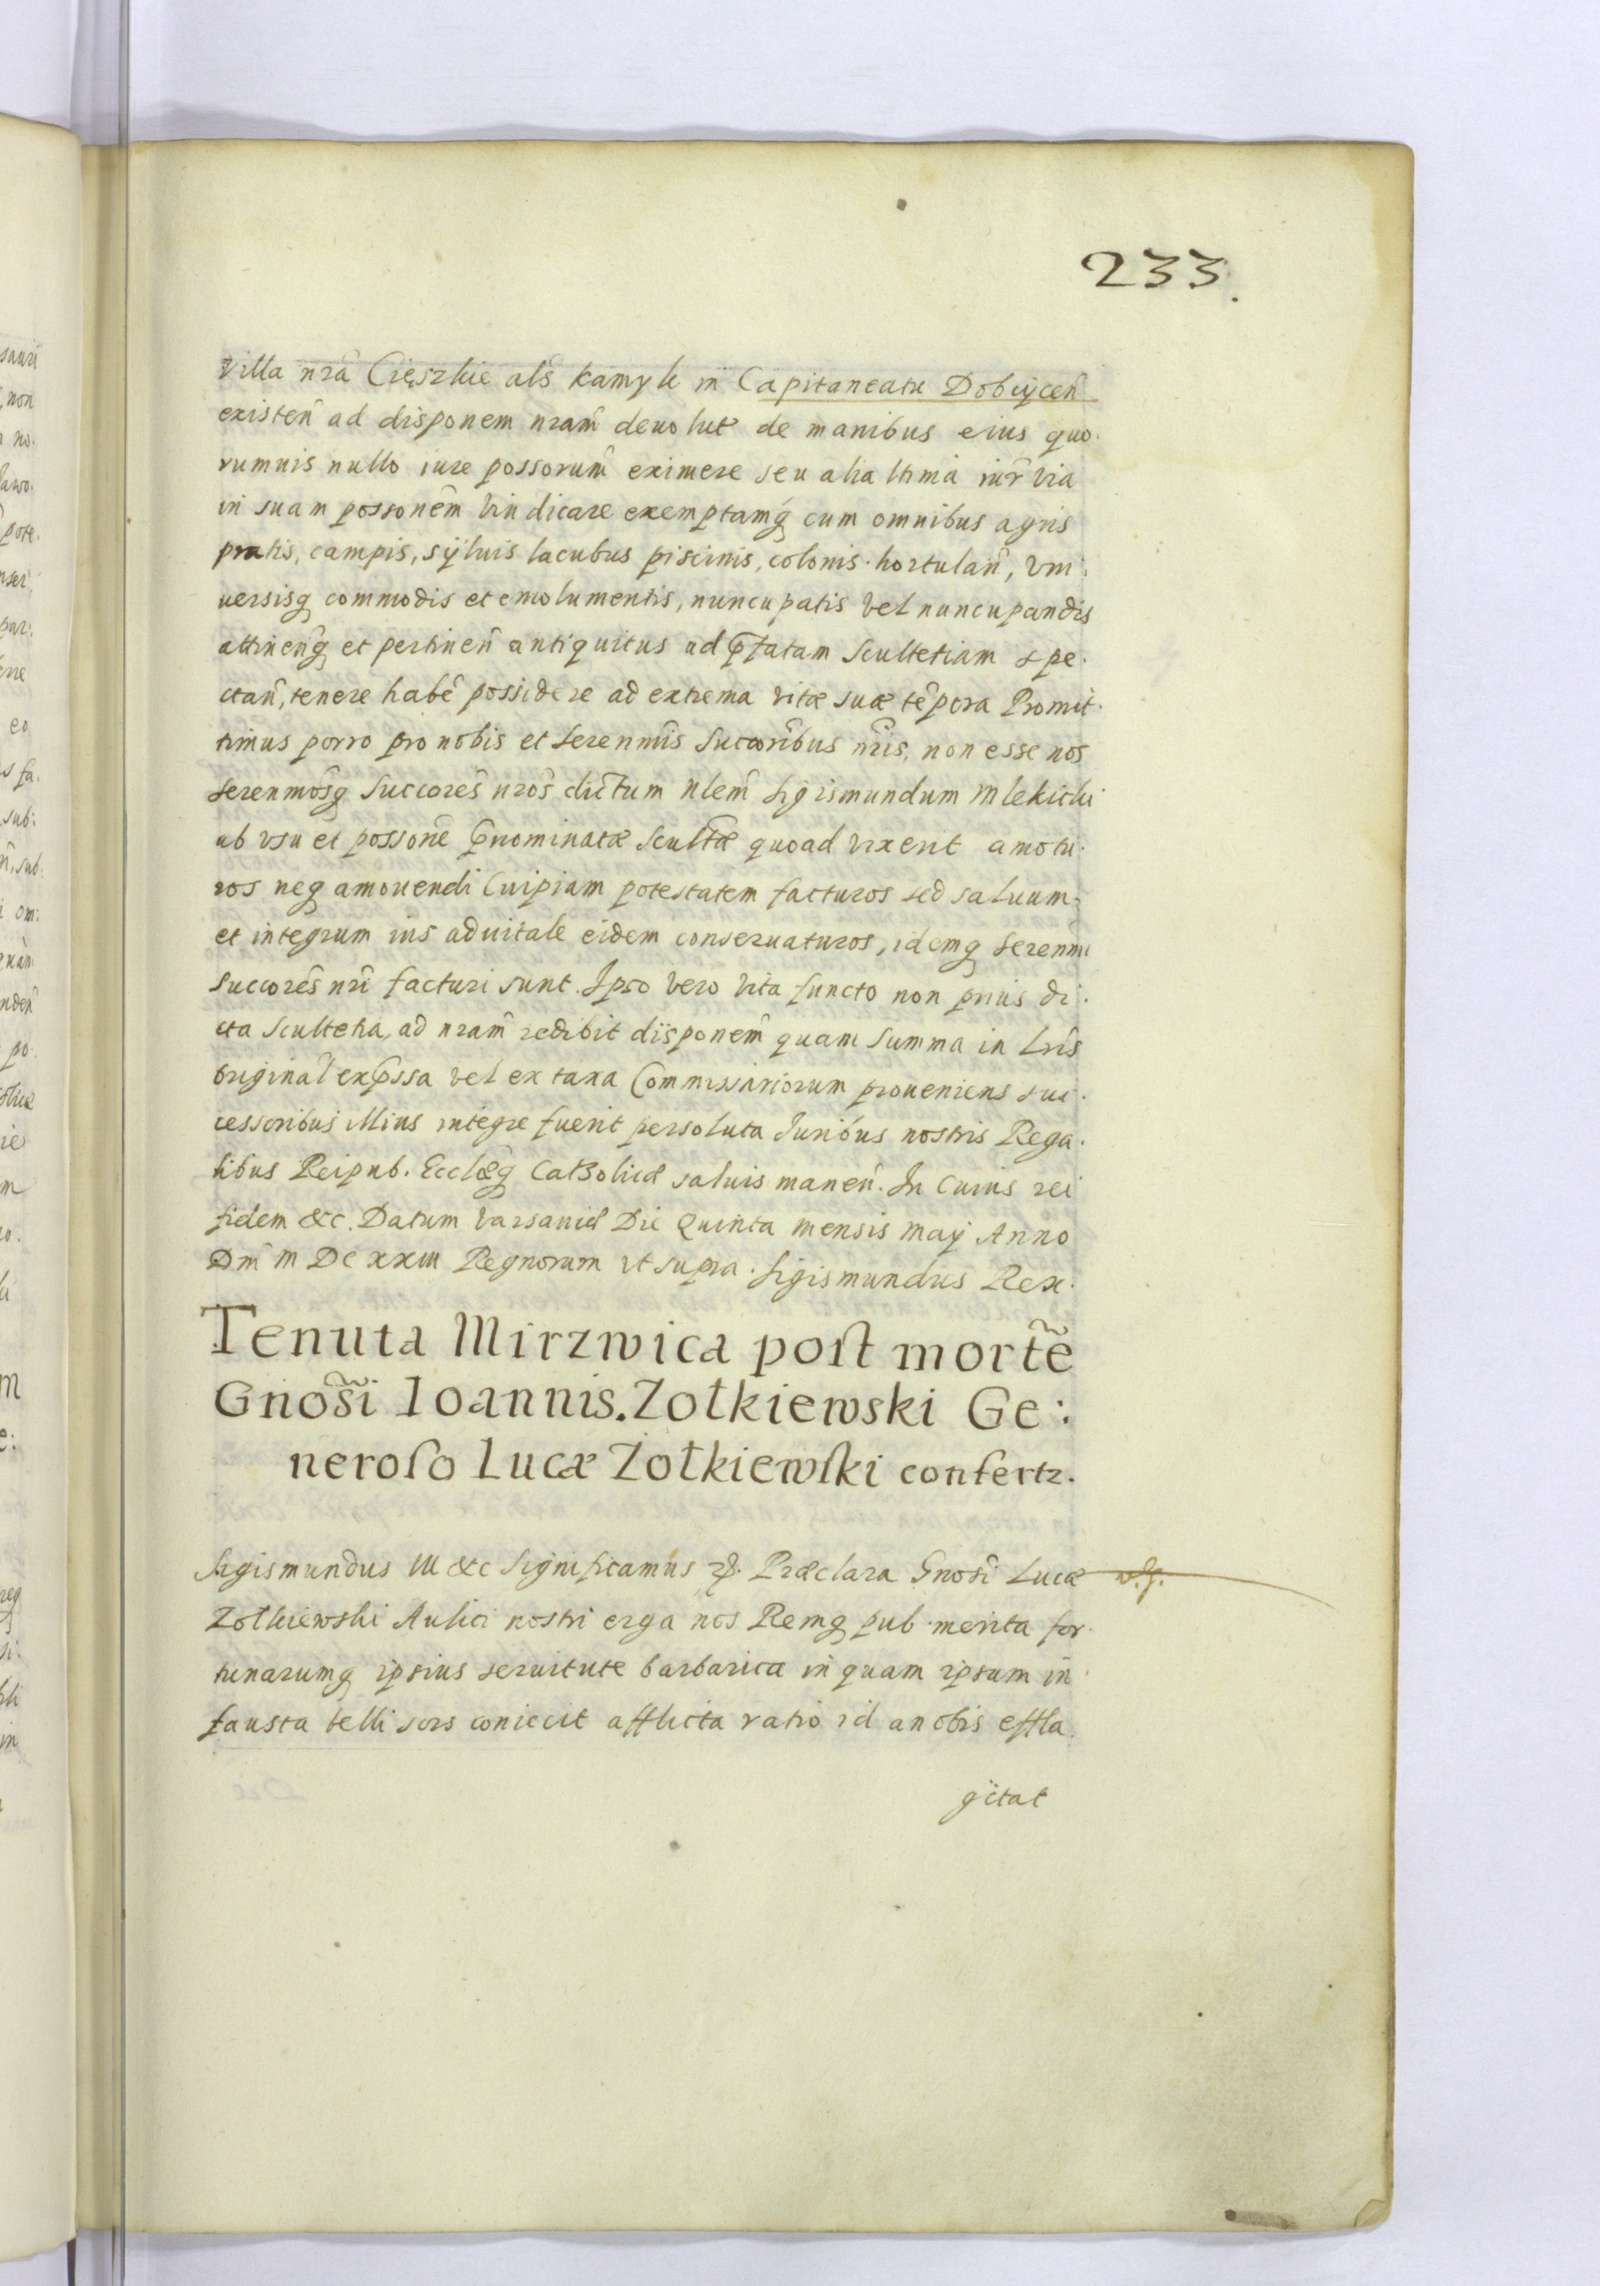 233.
Villa nrã Cięszkie als̃ kamyk in Capitaneatu Dobcycen̄
existen̄ ad disponem nram̃ deuolut de manibus eius quo.
rumuis nullo iure possorum̃ eximere seu alia ltima iur̃ via
in suam possonem̃ vindicare exemptamq̨ cum omnibus agris
pratis, campis, sÿluis lacubus piscinis, colonis hortulan̄, vni:
uersisq̨ commodis et emolumentis, nuncupatis vel nuncupandis
attinen̄q̨ et pertinen̄ antiquitus ad p̄fatam Scultetiam spe.
ctan̄, tenere habẽ possidere ad extrema vitæ suæ tẽpora Promit.
timus porro pro nobis et Serenmis̃ Succoribus̃ nris̃, non esse nos
Serenmos̃q̨ Succores̃ nros̃ dictum̃ Nlem̃ Sigismundum Mlekicki
ab vsu et possone p̄nominatæ Scultæ̃ quoad vixerit amotu.
ros neq̨ amouendi Cuipiam potestatem facturos sed saluum
et integrum ius aduitale eidem conseruaturos, idemq̨ Serenmi
Succores̃ nri̇̃ facturi sunt. Ipso vero vita functo non prius di.
cta Scultetia, ad nram̃ redibit disponem̃ quam summa in Lris̃
original̃ exp̄ssa vel ex taxa Commissariorum proueniens suc.
cessoribus illius integre fuerit persoluta Iuribus nostris Rega.
libus Reipub. Ecclæq̨ Catholicæ saluis manen̄. In cuius rei
fidem &c. Datum Varsauiæ Die Quinta mensis Maÿ Anno
Dm̃ M DC XXIII Regnorum vt supra. Sigismundus Rex.
Tenuta Mirzwica post mortẽ
Gnosĩ Ioannis. Zołkiewski Ge:
neroso Lucæ Zołkiewski confertr.
Sigismundus III &c Significamus Præclara Gnosĩ Lucæ
Zołkiewski Aulici nostri erga nos Remq̨ pub. merita for.
tunarumq̨ ipsius seruitute barbarica in quam ipsum in
fausta belli sors coniecit afflicta ratio id a nobis effla.
gitat